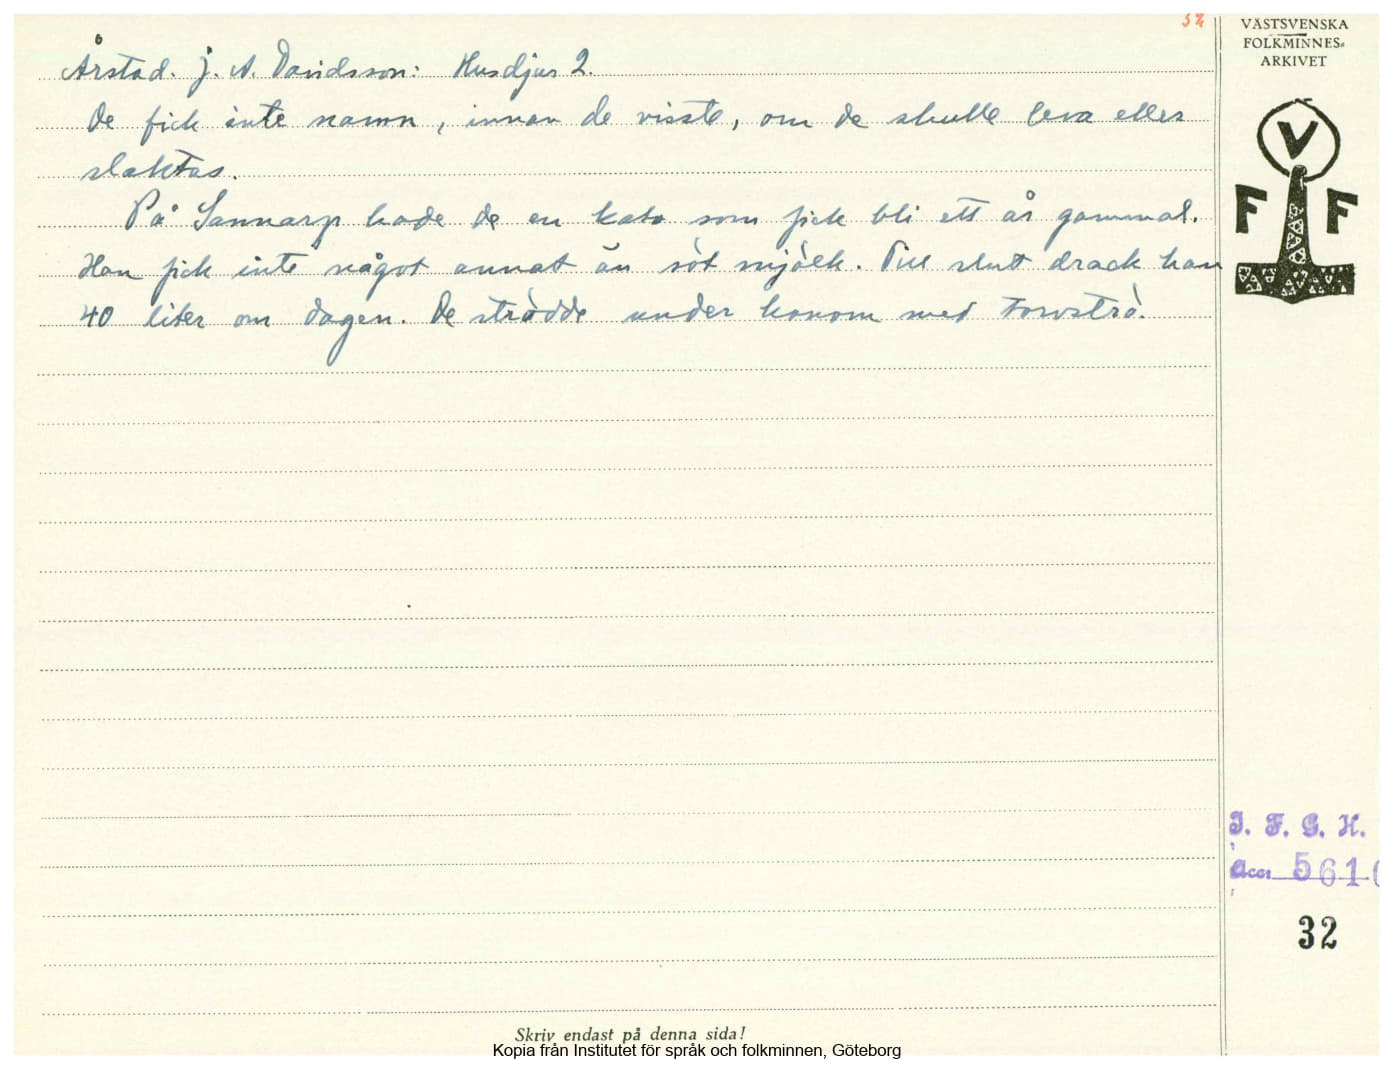 32
VÄSTSVENSKA
FOLKMINNES=
ARKIVET
Årstad. J. A. Davidsson: Husdjur 2.
De fick inte namn, innan de visste, om de skulle leva eller
slaktas.
På Sannarp hade de en kalv som fick bli ett år gammal.
Han fick inte något annat än söt mjölk. Till slut drack han
40 liter om dagen. De strödde under honom med
V
F F
I. F. G. H.
Acc. 5610
32
Skriv endast på denna sida!
Kopia från Institutet för språk och folkminnen, Göteborg